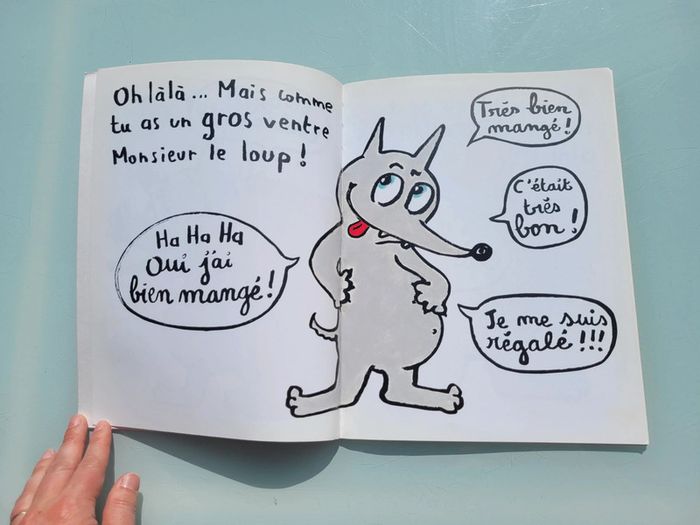 Oh làlà... Mais comme
tu as un gros ventre
Monsieur le loup !
Ha Ha Ha
Oui j'ai
bien mangé !
Trés bien
mangé !
C'était
trés
bon !
Je me suis
régalé !!!